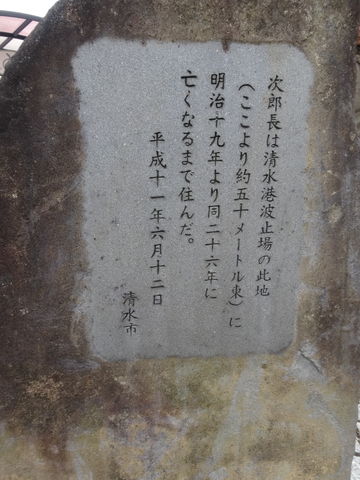 次郎長は清水港波止場の此地
（ここより約五十メートル東）に
明治十九年より同二十六年に
亡くなるまで住んだ。
平成十一年六月十二日
清水市